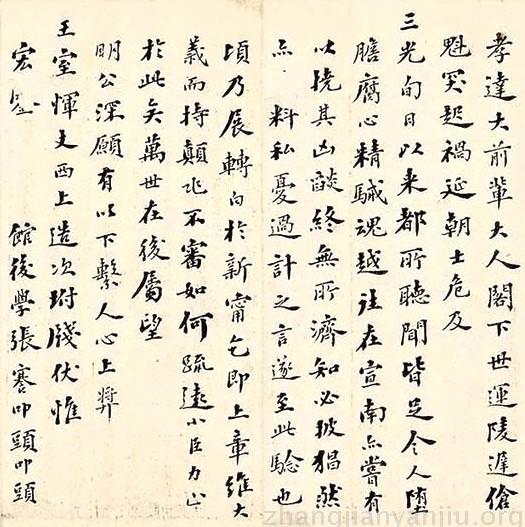 孝達大前輩大人閣下世運陵遲傖
魁突起禍延朝士危及
三光旬日以來都所聽聞皆足令人墮
膽腐心精駴魂越往在宣南亦嘗有
以撓其凶燄終無所濟知必披猖然
料私憂過計之言遂至此驗也
頃乃展轉向於新甯乞即上章維大
義而持顛沛不審如何疏遠小臣力止
於此矣萬世在後屬望
明公深願有以下繫人心上獎
王室惲丈西上造次坿牋伏惟
宏鑒 館後學張謇叩頭叩頭
zhangjianyanjiu.org